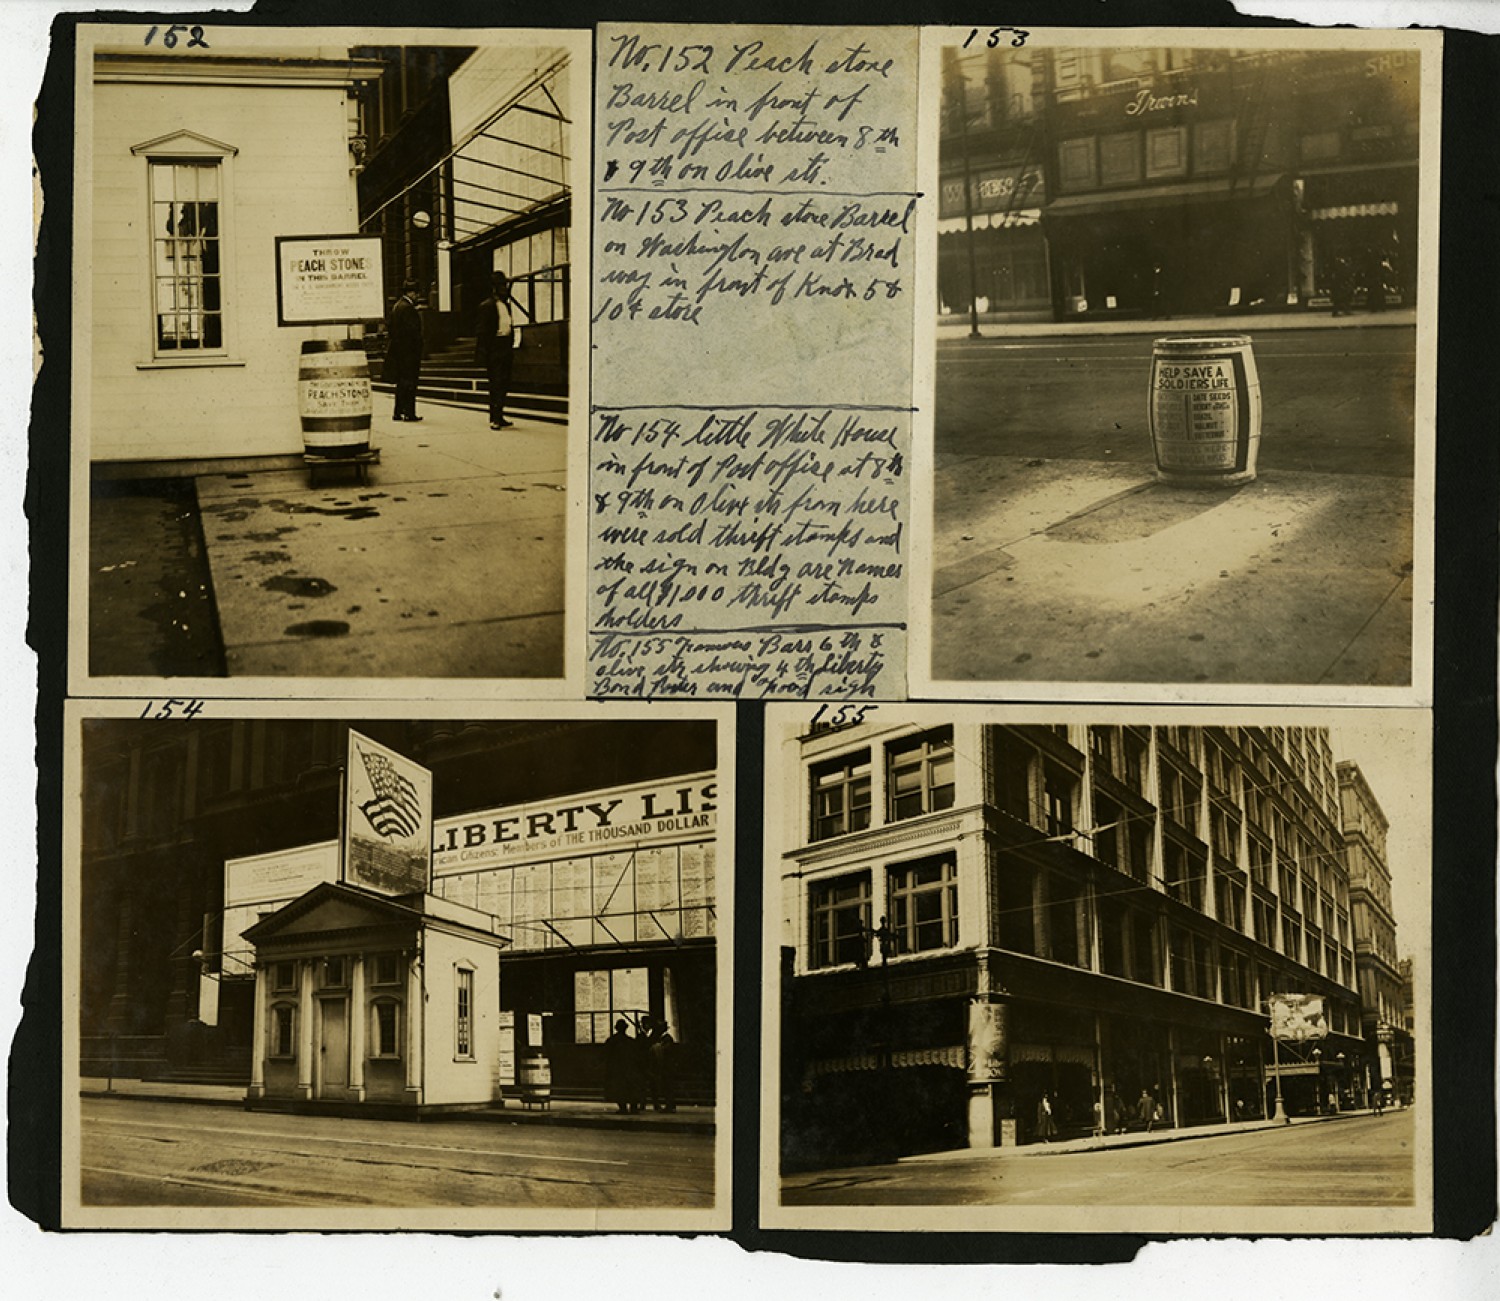 152
THROW
PEACH STONES
IN THIS BARREL
PEACH STONES
SAVE THEM
No. 152 Peach stone
Barrel in front of
Post office between 8th
& 9th on Olive sts.
No 153 Peach stone Barrel
on Washington ave at Brad
way in front of Knox 5 &
10¢ store
No 154 little White House
in front of Post office at 8th
& 9th on Olive sts from here
were sold thrift stamps and
the sign on Bldg are Names
of all $1000 thrift stamps
holders
No. 155 Famous Barr 6th &
olive sts showing 4th Liberty
Bond and Food sign
153
Irwins
SHO
HELP SAVE A
SOLDIERS LIFE
DATE SEEDS
154
LIBERTY LIS
rican Citizens: Members of THE THOUSAND DOLLAR
155